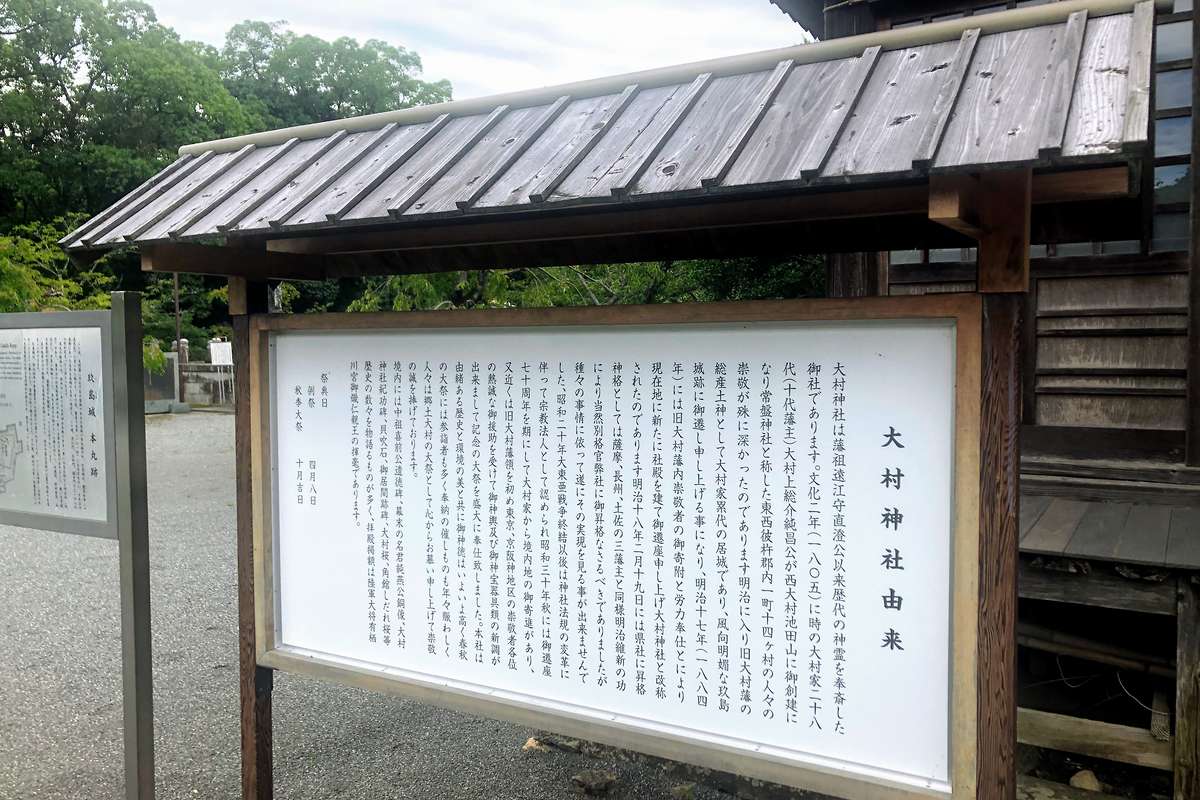 大村神社由来
大村神社は藩祖遠江守直澄公以来歴代の神霊を奉斎した
御社であります。文化二年(一八〇五)に時の大村家二十八
代(十代藩主)大村上総介純昌公が西大村池田山に御創建に
なり常盤神社と称した東西彼杵郡内一町十四ヶ村の人々の
崇敬が殊に深かったのであります明治に入り旧大村藩の
総産土神として大村家累代の居城であり、風向明媚な玖島
城跡に御遷し申し上げる事になり、明治十七年(一八八四
年)には旧大村藩内崇敬者の御寄附と労力奉仕とにより
現在地に新たに社殿を建て御遷座申し上げ大村神社と改称
されたのであります明治十八年二月十九日には県社に昇格
神格としては薩摩、長州、土佐の三藩主と同様明治維新の功
により当然別格官弊社に御昇格なさるべきでありましたが
種々の事情に依って遂にその実現を見る事が出来ませんで
した、昭和二十年大東亜戦争終結以後は神社法規の変革に
伴って宗教法人として認められ昭和三十年秋には御遷座
七十周年を期にして大村家から境内地の御寄進があり、
又近くは旧大村藩領を初め東京、京阪神地区の崇敬者各位
の熱誠な御援助を受けて御神輿及び御神宝器具類の新調が
出来まして記念の大祭を盛大に奉仕致しました。本社は
由緒ある歴史と環境の美と共に御神徳はいよいよ高く春秋
の大祭には参詣者も多く奉納の催しものも年々賑わしく
人々は郷土大村の大祭として心からお慕い申し上げて崇敬
の誠を捧げております。
境内には中祖喜前公遺徳碑、幕末の名君純熈公銅像、大村
神社紀功碑、貝吹石、御居間跡碑、大村桜、角館しだれ桜等
歴史の数々を物語るものが多く、拝殿掲額は陸軍大将有栖
川宮御熾仁親王の揮毫であります。
祭典日
例祭 四月八日
秋季大祭 十月吉日
玖島城 本丸跡